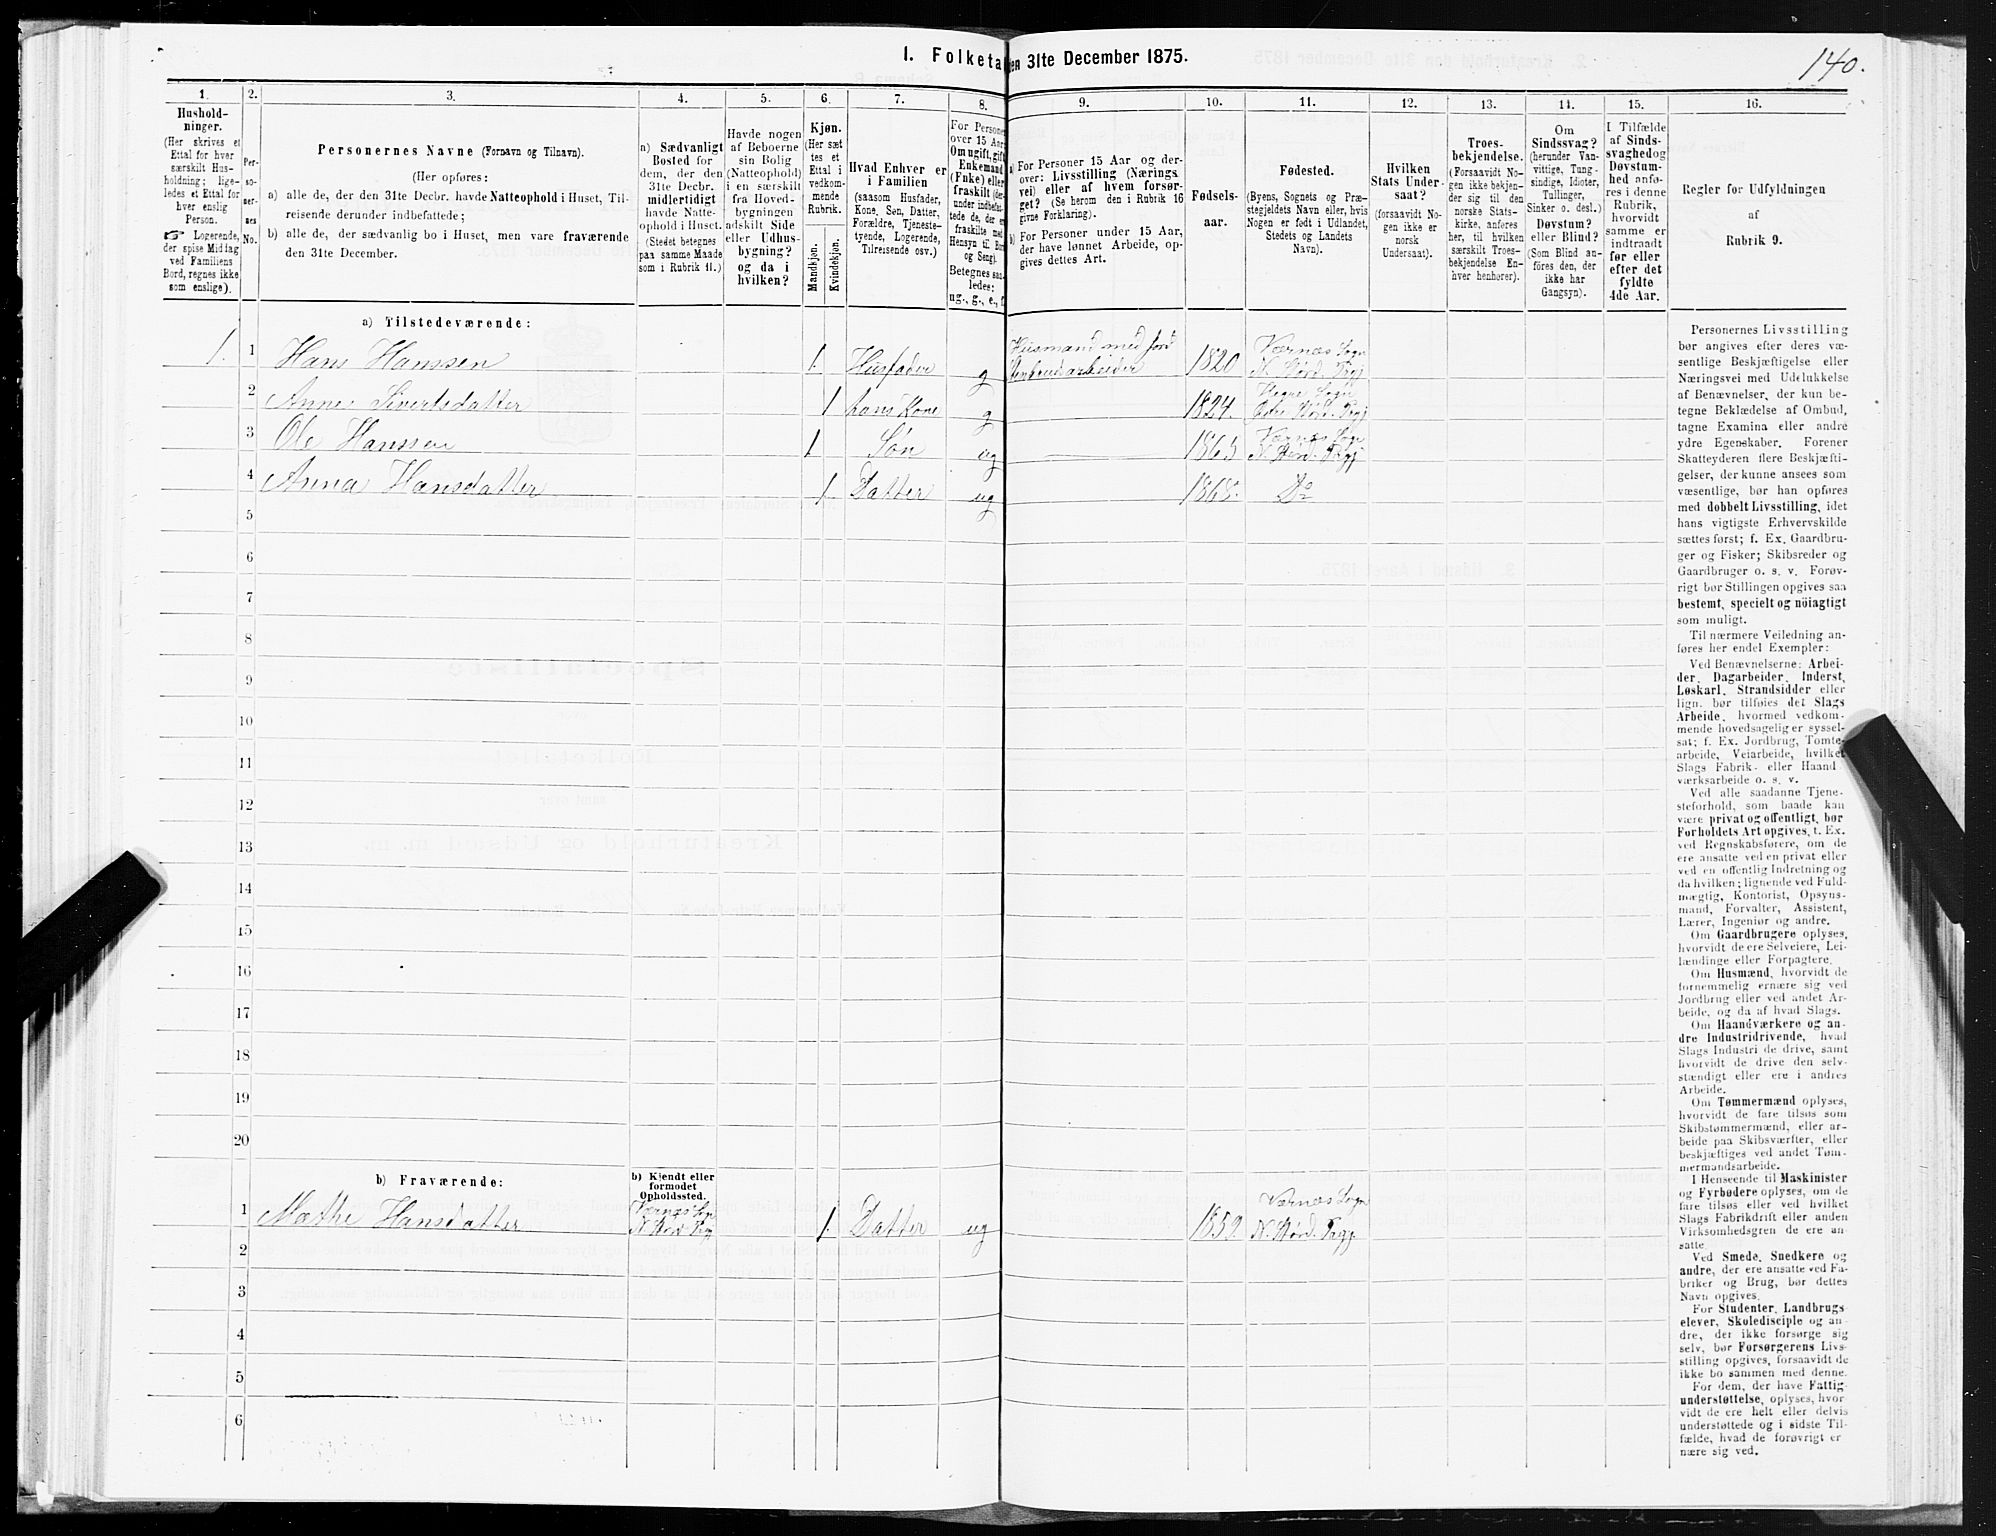 140.
1. Folketa
den 31te December 1875.
1.
2.
3.
4.
5.
6.
7.
8.
9.
10.
11.
12.
13.
14.
15.
16.
Hushold-
ninger.
(Her skrives et
Ettal for hver
særskilt Hus-
holdning; lige-
ledes et Ettal for
hver enslig
Person.
☞ Logerende,
der spise Middag
ved Familiens
Bord, regnes ikke
som enslige).
Per-
so-
ner-
nes
No.
Personernes Navne (Fornavn og Tilnavn).
(Her opføres:
a) alle de, der den 31te Decbr. havde Natteophold i Huset, Til-
reisende derunder indbefattede;
b) alle de, der sædvanlig bo i Huset, men vare fraværende
den 31te December.
a) Sædvanligt
Bosted for
dem, der den
31te Decbr.
midlertidigt
havde Natte-
ophold i Huset.
(Stedet betegnes
paa samme Maade
som i Rubrik 11.)
Havde nogen
af Beboerne
sin Bolig
(Natteophold)
i en særskilt
fra Hoved-
bygningen
adskilt Side
eller Udhus-
bygning?
og da i
hvilken?
Kjøn.
(Her sæt
tes et
Ettal i
vedkom-
mende
Rubrik.
Mandkjøn.
Kvindekjøn.
Hvad Enhver er
i Familien
(saasom Husfader,
Kone, Søn, Datter,
Forældre, Tjeneste-
tyende, Logerende,
Tilreisende osv.)
For Persone
over 15 Aar
Om ugift, gift
Enkemand
(Enke) eller
fraskilt (der-
under indbefat-
tede de, der er
fraskilte med
Hensyn til Bor
og Seng).
Betegnes saa-
ledes:
ug., g., e., f.
a) For Personer 15 Aar og der-
over: Livsstilling (Nærings
vei) eller af hvem forsør-
get? (Se herom den i Rubrik 16
givne Forklaring).
b) For Personer under 15 Aar,
der have lønnet Arbeide, op-
gives dettes Art.
Fødsels-
aar.
Fødested.
(Byens, Sognets og Præ-
stegjeldets Navn eller, hvis
Nogen er født i Udlandet,
Stedets og Landets
Navn).
Hvilken
Stats Under-
saat?
(forsaavidt No-
gen ikke er
norsk
Undersaat).
Troes-
bekjendelse.
(Forsaavidt No-
gen ikke bekjen-
der sig til den
norske Stats-
kirke, anføres
her, til hvilken
særskilt Troes-
bekjendelse En-
hver henhører).
Om
Sindssvag?
(herunder Van-
vittige, Tung-
sindige, Idioter,
Tullinger,
Sinker o. desl.)
Døvstum?
eller Blind?
(Som Blind an-
føres den, der
ikke har
Gangsyn).
I Tilfælde
af Sinds-
svaghed og
Døvstum-
hed anfø-
res i denne
Rubrik,
hvorvidt
samme er
indtraadt
før eller
efter det
fyldte
4de Aar.
Regler for Udfyldningen
af
Rubrik 9.
a) Tilstedeværende:
1. 1 Hans Hanssen 1. Husfader g Husmand med Jord 1820 Værnes Sogn
Stenbrudarbeider N. Størd. Prgj
2 Anne Sivertsdatter 1 hans Kone g 1824. Hegre Sogn
Øvre Størd. Prgj
3 Ole Hanssen 1 Søn ug 1863 Værnes Sogn
N. Størd. Prgj
4 Anna Hansdatter 1. Datter ug 1868. Do
5
6
7
8
9
10
11
12
13
14
15
16
17
18
19
20
b) Fraværende:
b) Kjendt eller
formodet
Opholdssted.
1 Mathe Hansdatter Værnes Sogn 1. Datter ug 1859. Værnes Sogn
N. Størd. Prgj N. Størd. Prgj.
2
3
4
5
6
Personernes Livsstilling
bør angives efter deres væ-
sentlige Beskjæftigelse eller
Næringsvei med Udelukkelse
af Benævnelser, der kun be-
tegne Beklædelse af Ombud,
tagne Examina eller andre
ydre Egenskaber. Forener
Skatteyderen flere Beskjæfti-
gelser, der kunne ansees som
væsentlige, bør han opføres
med dobbelt Livsstilling, idet
hans vigtigste Erhvervskilde
sættes først; f. Ex. Gaardbru-
ger og Fisker; Skibsreder og
Gaardbruger o. s. v. Forøv-
rigt bør Stillingen opgives saa
bestemt, specielt og nöiagtigt
som muligt.
Til nærmere Veiledning an-
føres her endel Exempler:
Ved Benævnelserne: Arbei-
der, Dagarbeider, Inderst,
Løskarl, Strandsidder eller
lign. bør tilføies det Slags
Arbeide, hvormed vedkom-
mende hovedsagelig er syssel-
sat; f. Ex. Jordbrug, Tomte-
arbeide, Veiarbeide, hvilket
Slags Fabrik- eller Haand-
værksarbeide o. s. v.
Ved alle saadanne Tjene-
steforhold, som baade kan
være privat og offentligt, bør
Forholdets Art opgives, t. Ex.
ved Regnskabsførere, om de
ere ansatte ved en privat eller
ved en offentlig Indretning og
da hvilken; lignende ved Fuld-
mægtig, Kontorist, Opsyns-
mand, Forvalter, Assistent,
Lærer, Ingeniør og andre.
Om Gaardbrugere oplyses,
hvorvidt de ere Selveiere, Lei-
lændinge eller Forpagtere.
Om Husmænd, hvorvidt de
fornemmelig ernære sig ved
Jordbrug eller ved andet Ar-
beide, og da af hvad Slags.
Om Haandværkere og an-
dre Industridrivende, hvad
Slags Industri de drive, samt
hvorvidt de drive den selv-
stændigt eller ere i andres
Arbeide.
Om Tømmermænd oplyses,
hvorvidt de fare tilsøs som
Skibstømmermænd, eller ar-
beide paa Skibsværfter, eller
beskjæftiges ved andet Tøm-
mermandsarbeide.
I Henseende til Maskinister
og Fyrbødere oplyses, om de
fare tilsøs eller ved hvilket
Slags Fabrikdrift eller anden
Virksomhedsgren de ere an-
satte.
Ved Smede, Snedkere og
andre, der ere ansatte ved Fa-
briker og Brug, bør dettes
Navn opgives.
For Studenter, Landbrugs-
elever, Skoledisciple og an-
dre, der ikke forsørge sig
selv, bør Forsørgerens Livs-
stilling opgives, forsaavidt de
ikke bo sammen med denne.
For dem, der have Fattig-
understøttelse, oplyses, hvor-
vidt de ere helt eller delvis
understøttede og i sidste Til-
fælde, hvad de forøvrigt er
nære sig ved.